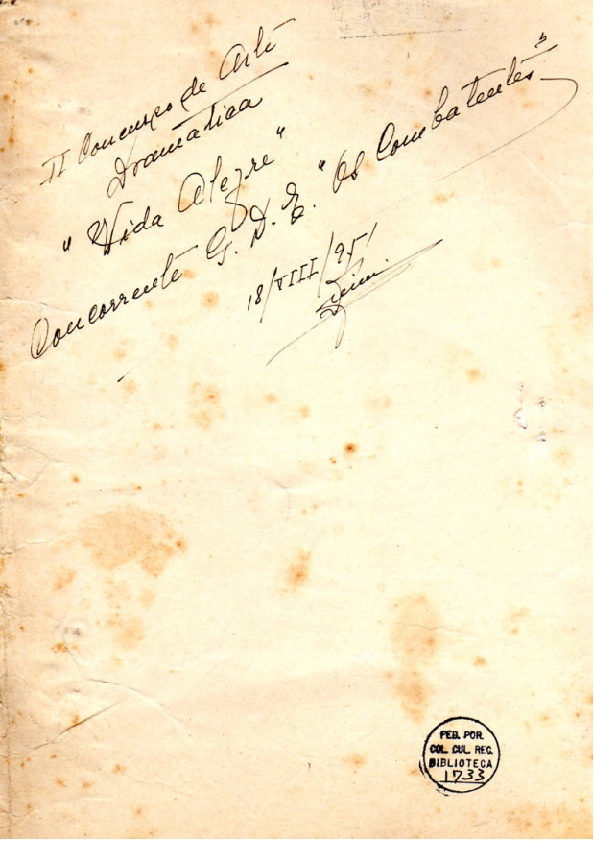 II Concurso de Arte
Dramática
"Vida Alegre"
Concorrente G. D. E. "Os Combatentes"
18/VIII/951
FED. POR.
COL. CUL. REC.
BIBLIOTECA
1733